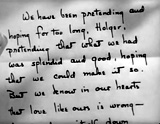 We have been pretending and
hoping for too long, Holger,
pretending that what we had
was splendid and good, hoping
that we could make it so.
But we know in our hearts
that love like ours is wrong—
itself down